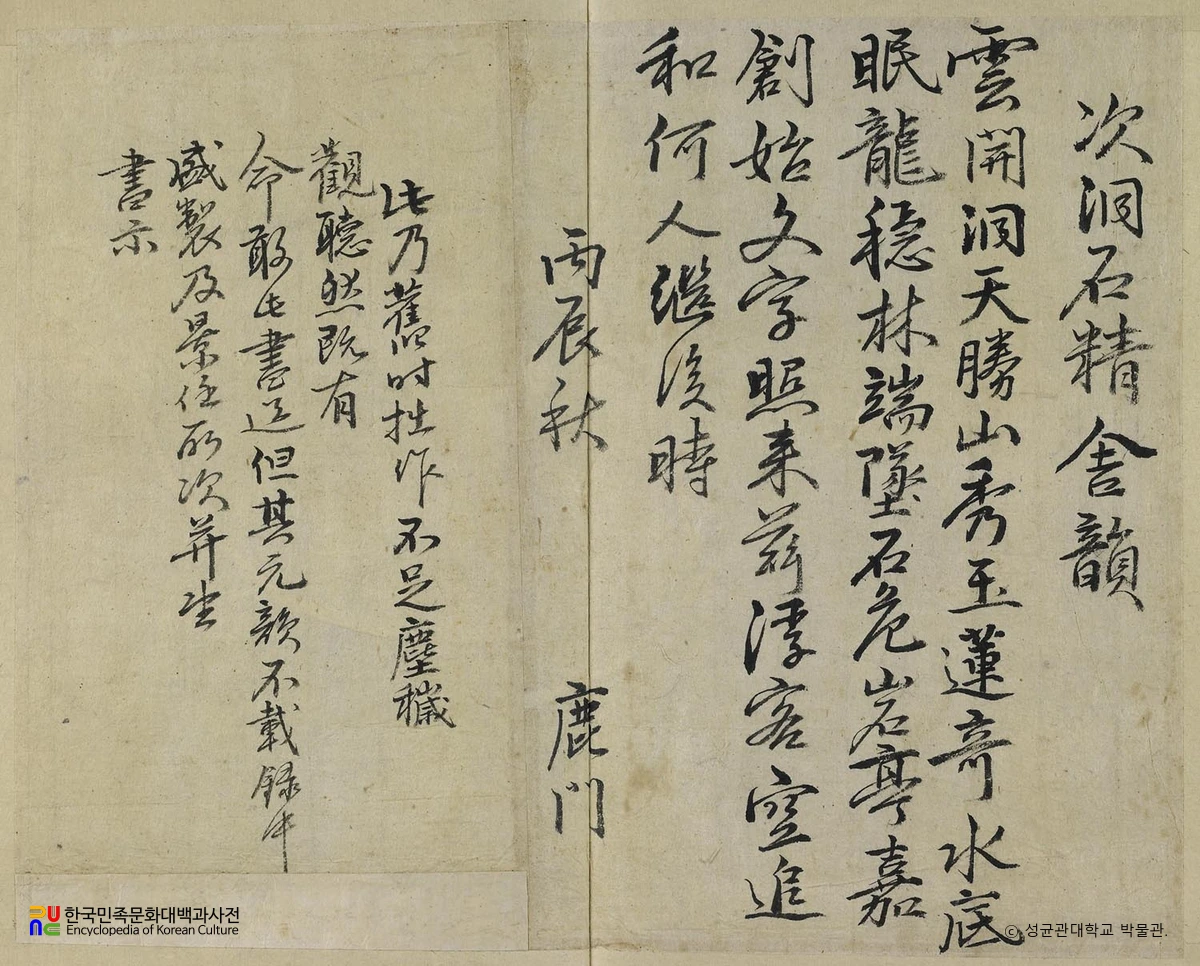 次洞石精舍韻
雲開洞天勝山秀玉蓮奇水底
眠龍穩林端墜石危岩亭嘉
創始文字照來玆浮客空追
和何人繼後時
丙辰秋 鹿門
此乃舊時拙作不足塵穢
觀聽然旣有
命敢此書送但其元韻不載錄中
盛製及景任所次并坐
書示
한국민족문화대백과사전
Encyclopedia of Korean Culture
© 성균관대학교 박물관.